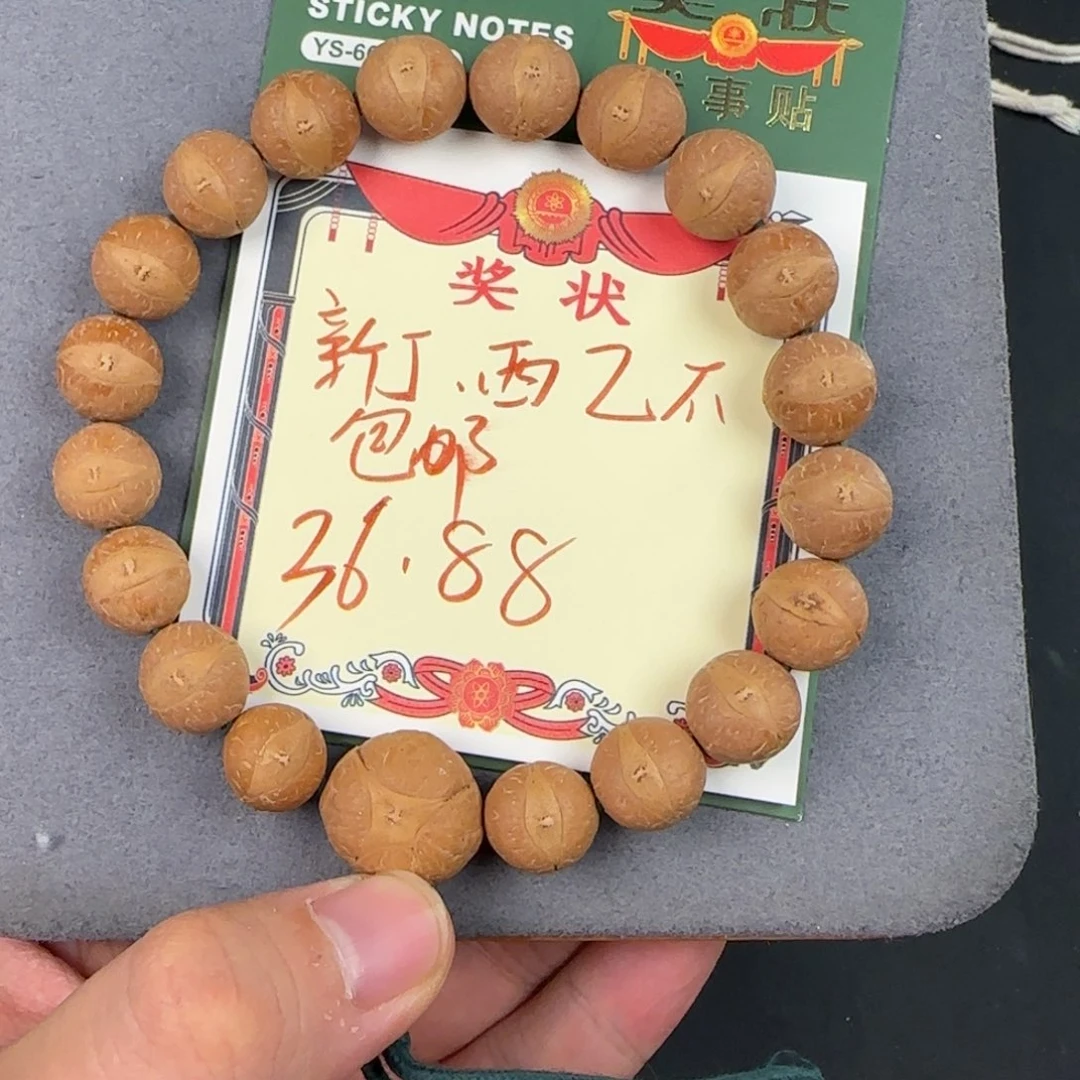 STICKY NOTES
YS-6
奖状
事贴
奖状
新丁.西乙不
包邮
36.88